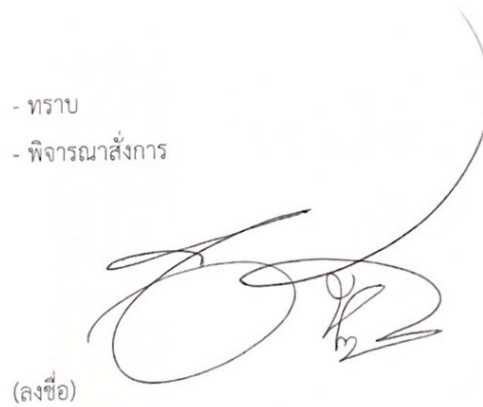 - ทราบ
- พิจารณาสั่งการ
(ลงชื่อ)